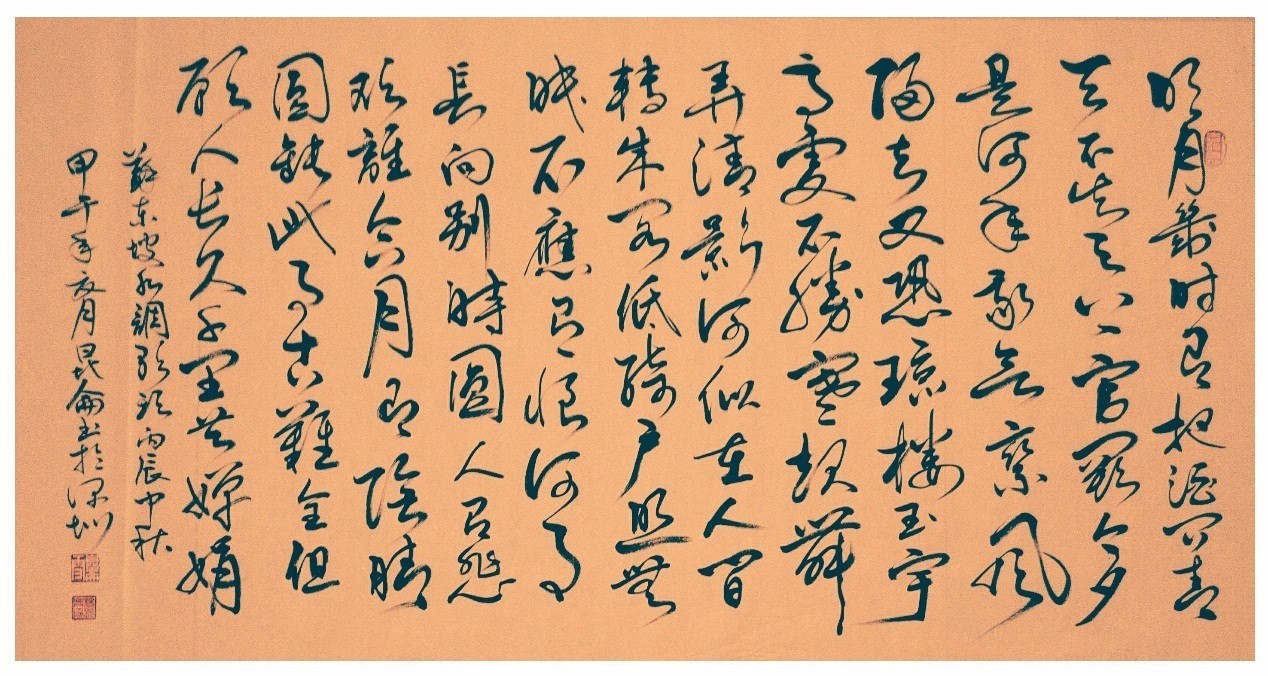 明月幾时有把酒问青
天不知天上宫阙今夕
是何年我欲乘风
歸去又恐琼樓玉宇
高處不勝寒起舞
弄清影何似在人间
轉朱阁低绮户照無
眠不應有恨何事
長向别時圓人有悲
欢離合月有陰晴
圓缺此事古難全但
願人长久千里共嬋娟
蘇东坡水調歌头丙辰中秋
甲午年夏月昆侖书於深圳